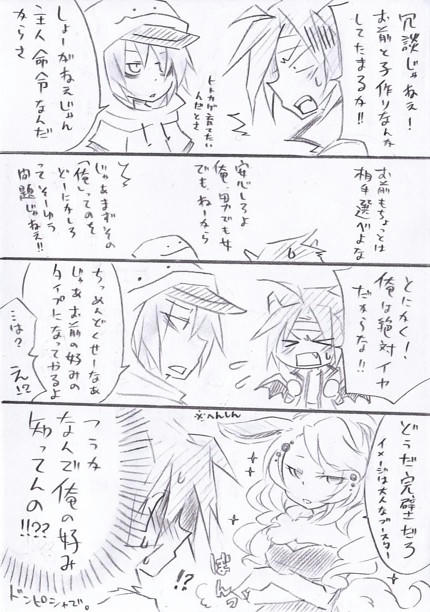 冗談じゃねえ!
お前と子作りなんか
してたまるか!!
しょーがねえじゃん
主人命令なんだ
からさ
トカゲ育てたい
んだとさ
お前もちょっとは
相手選べよな
安心しろよ
俺、男でも女
でも、ねーから
じゃあまずその
「俺」ってのを
どーにかしろ
って そーゆう
問題じゃねえ!!
とにかく!
俺は絶対イヤ
だからな!!
ちっめんどくせーなあ
じゃあお前の好みの
タイプになってやるよ
…は?
え!?
※へんしん
どうだ完璧だろ
イメージは大人なブースター
ぼんっ
!?
つうか
なんで俺の好み
知ってんの!!??
ドンピシャで。